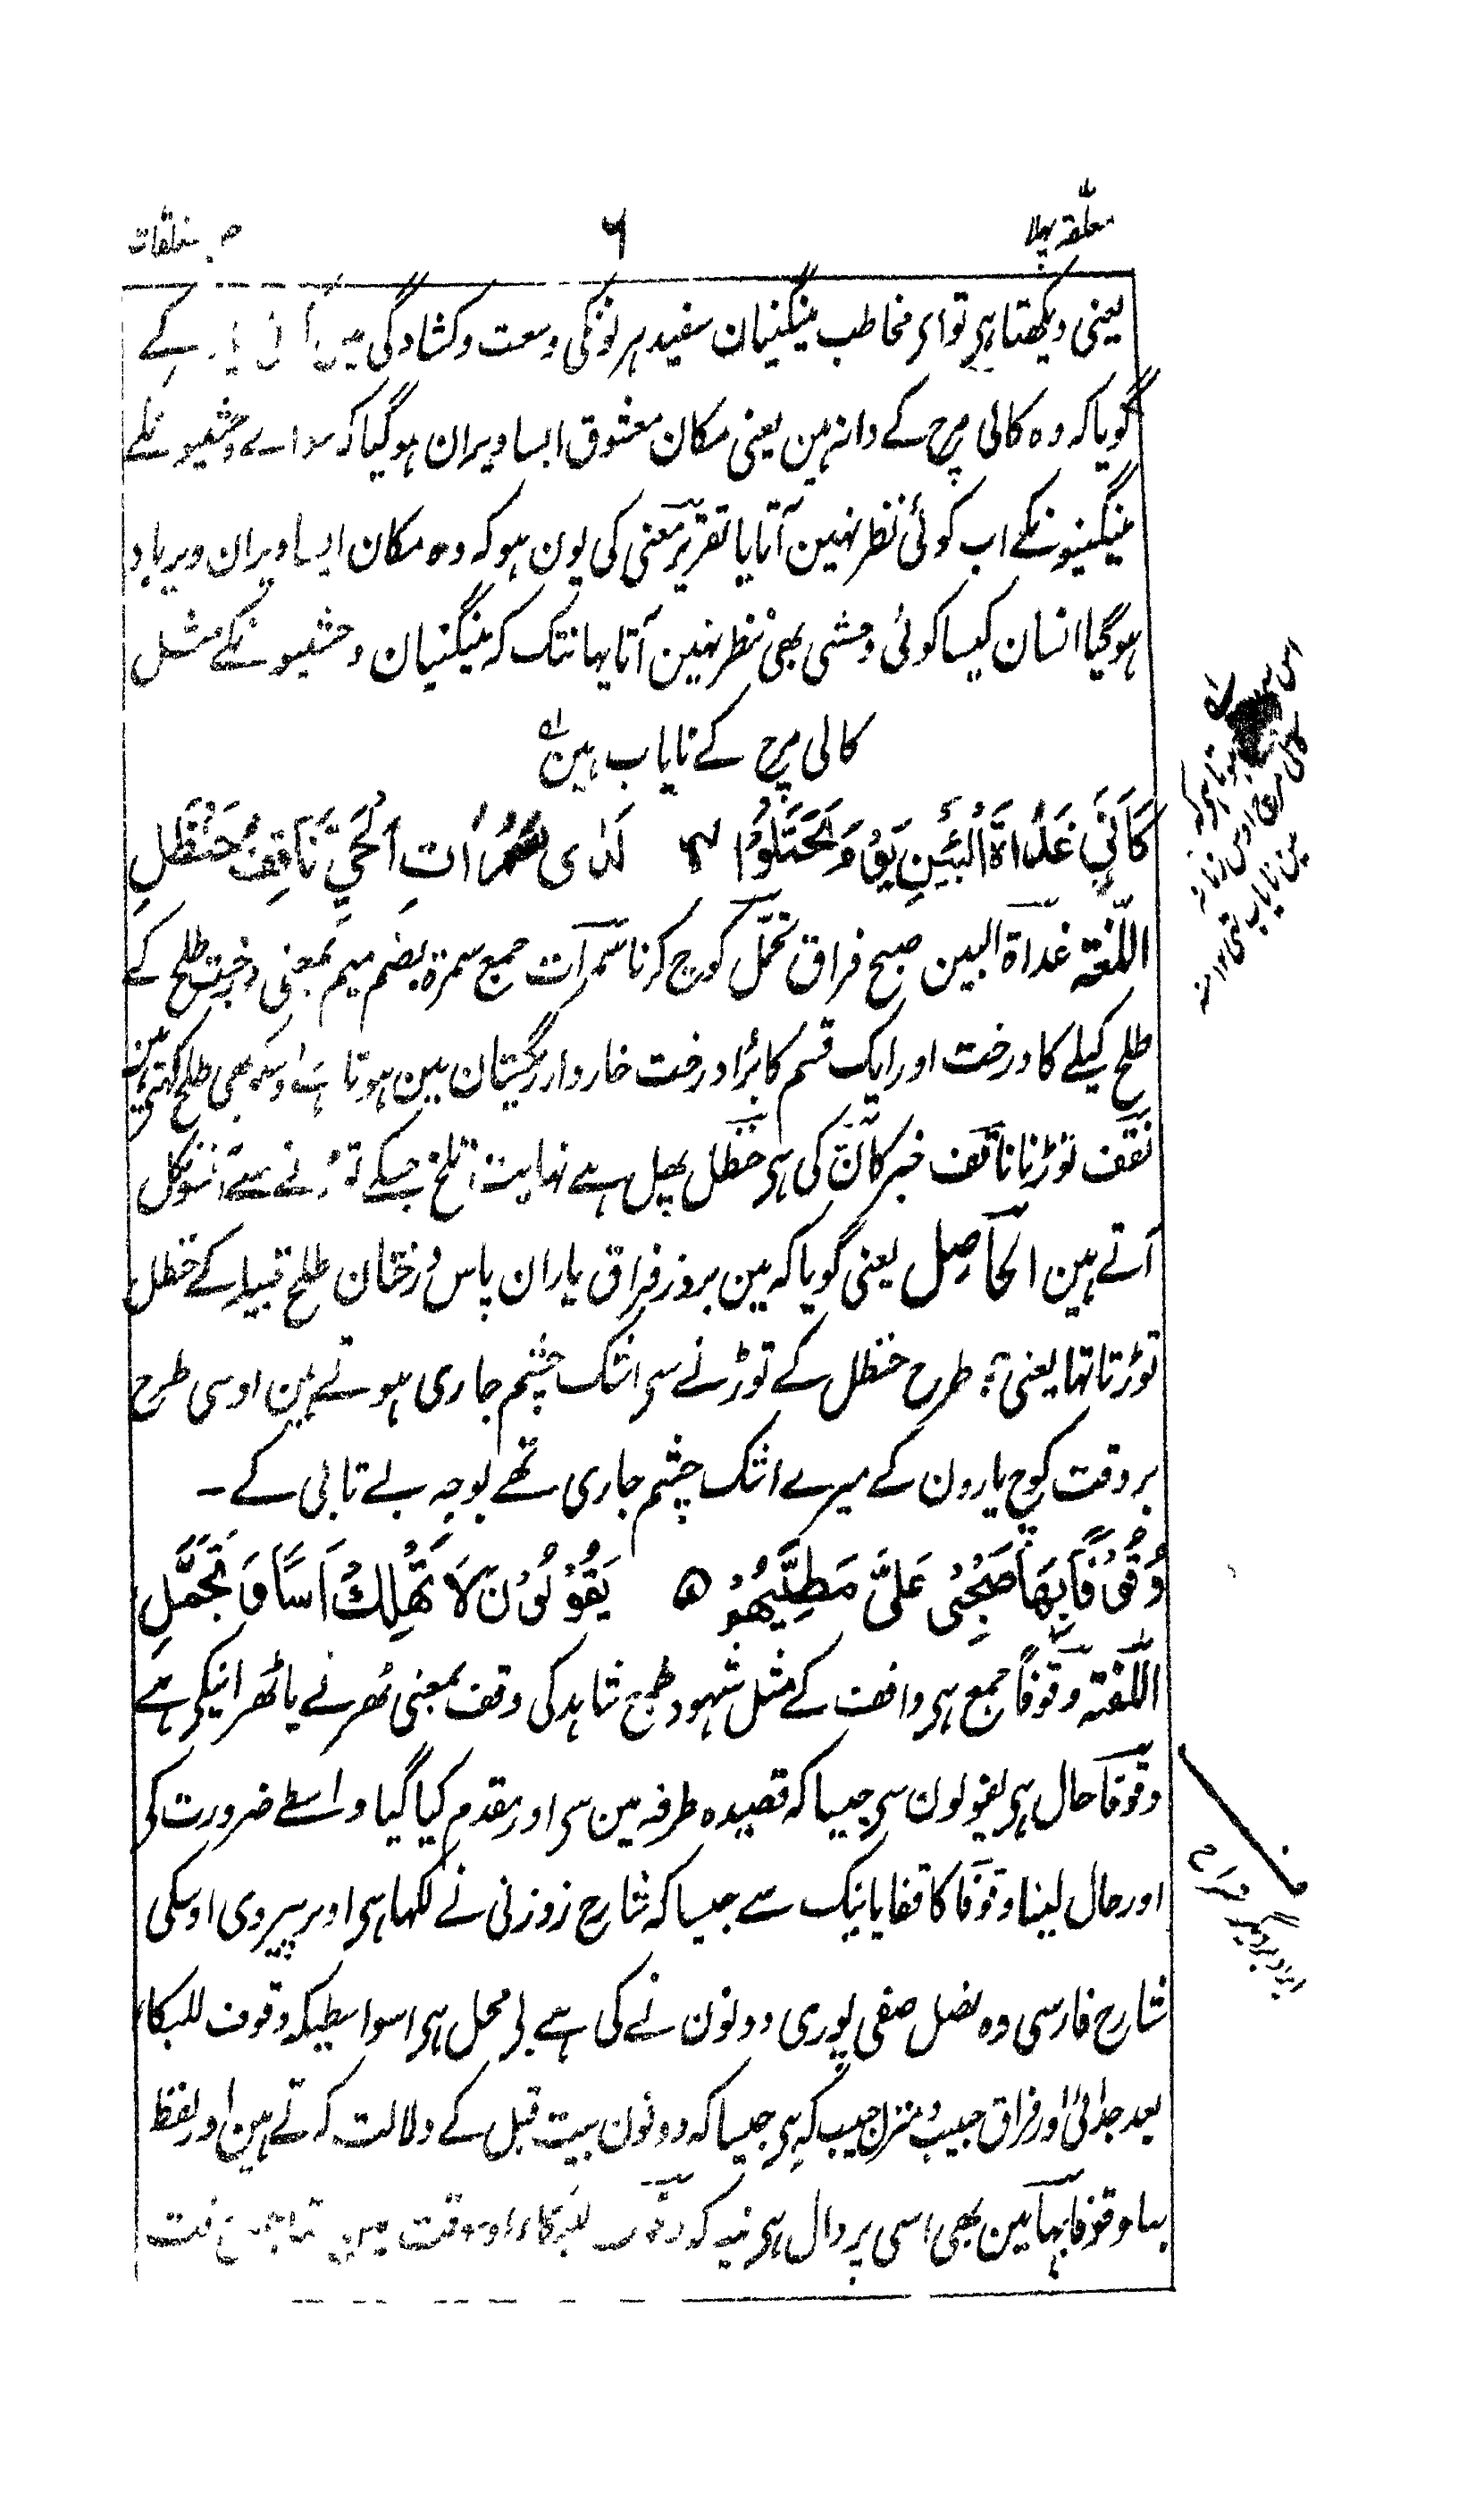 معلقہ پہلا ۶ معلقات
یعنی دیکھتا ہی تو ای مخاطب مینگنیان سفید ہرنونکی وسعت و کشادگی میں کے
گویا کہ وہ کالی مرچ کے دانہ ہین یعنی مکان معشوق ایسا ویران ہوگیا کہ سواے وحشیونکے
مینگنیونکے اب کوئی نظر نہین آتا یا تقریر معنی کی یون ہو کہ وہ مکان ایسا ویران و برباد
ہوگیا انسان کیسا کوئی وحشی بھی نظر نہین آتا یہانتک کہ مینگنیان وحشیونکے مثل
کالی مرچ کے نایاب ہین
كَاَنِّيْ غَدَاةَ الْبَيْنِ يَوْمَ تَحَمَّلُوْا ۴ لَدٰى سَمُرَاتِ الْحَيِّ نَاقِفُ حَنْظَلِ
اللّغة غداة البین صبح فراق تحمّل کوچ کرنا سمرات جمع سمرة بضم میم بمعنی درخت طلح کے
طلح کیلے کا درخت اور ایک قسم کا بڑا درخت خاردار ریگستان مین ہوتا ہے اوسکو بھی طلح کہتی ہین
نقف توڑنا ناقف خبر کانّ کی ہی حنظل پھل ہے نہایت تلخ جسکے توڑنے سے آنسو نکل
آتے ہین الحاصل یعنی گویا کہ مین بروز فراق یاران پاس درختان طلح قبیلہ کے حنظل
توڑتا تہا یعنی طرح حنظل کے توڑنے سی اشک چشم جاری ہوتے ہین اوسی طرح
بروقت کوچ یارون کے میرے اشک چشم جاری تھے بوجہ بے تابی کے ۔
وُقُوْفًا بِهَا صَحْبِيْ عَلَيَّ مَطِيَّهُمْ ۵ يَقُوْلُوْنَ لَا تَهْلِكْ اَسًا وَ تَجَمَّلِ
اللّغة وقوفًا جمع ہی واقف کے مثل شہود جمع شاہد کی وقف بمعنی ٹھرنے یا ٹھرانیکی ہے
وقوفا حال ہی یقولون سی جیسا کہ قصیدہ طرفہ مین ہی اور مقدم کیا گیا واسطے ضرورت کی
اور حال لینا وقوفا کا قفا یا نبک سے جیسا کہ شارح زوزنی نے لکہا ہی اور پیروی اوسکی
شارح فارسی وہ فضل صفی پوری دونون نے کی ہے بی محل ہی اسواسطیکہ وقوف للبکا
بعد جدائی اور فراق حبیب و منزل حبیب کہ ہی جیسا کہ دونون بیت قبل کے دلالت کرتے ہین اور لفظ
بہا وقوفا بہا مین بھی اسی پر دال ہی کہ وقوف للبکاء اوسوقت مین